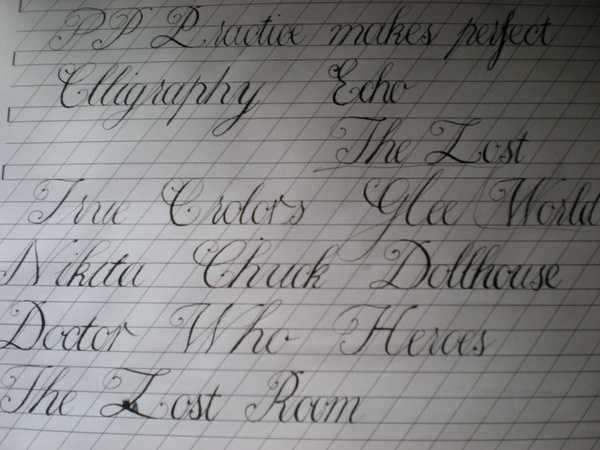 PP Practice makes perfect
Clligraphy Echo
The Lost
True Crolors Glee World
Nikita Chuck Dollhouse
Doctor Who Heroes
The Lost Room